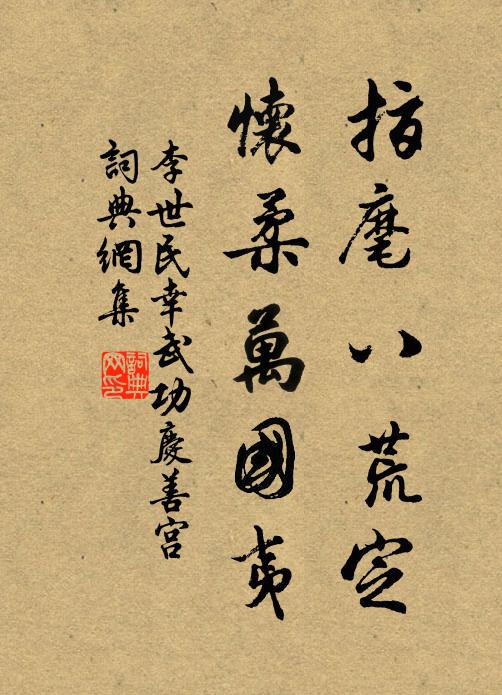 指麾八荒定
懷柔萬國夷
李世民幸武功慶善宮
詞典網集
詞典网印